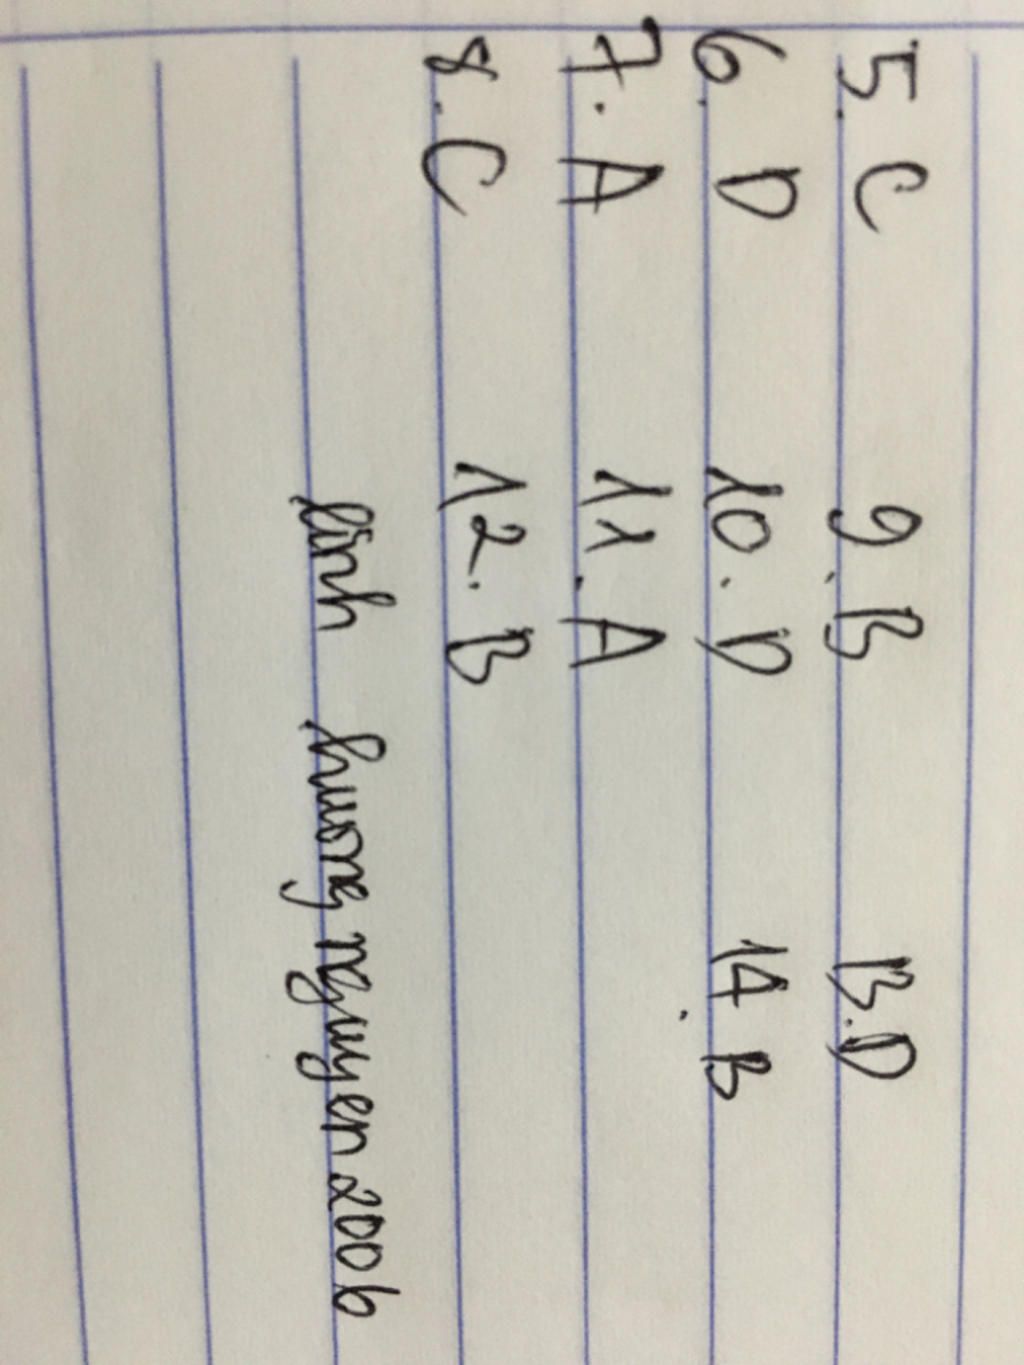 5. C 9. B 13. D
6. D 10. D 14. B
7. A 11. A
8. C 12. B
linh huong nguyen 2006